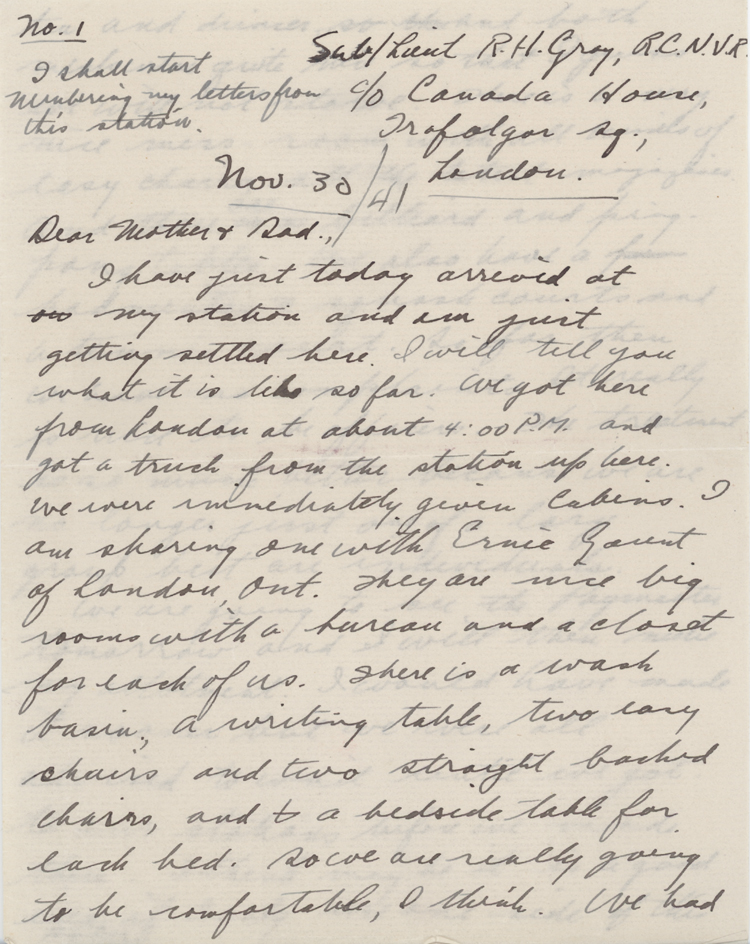 No. 1
I shall start
numbering my letters from
this station.
Sub/Lieut R.H. Gray, R.C.N.V.R.
c/o Canada House,
Trafalgar Sq.,
London.
Nov. 30/41
Dear Mother & Dad.,
I have just today arrived at
on my station and am just
getting settled here. I will tell you
what it is like so far. We got here
from London at about 4:00 P.M. and
got a truck from the station up here.
We were immediately given Cabins. I
am sharing one with Ernie Gaunt
of London, Ont. They are nice big
rooms with a bureau and a closet
for each of us. There is a wash
basin, a writing table, two easy
chairs and two straight backed
chairs, and t a bedside table for
each bed. So we are really going
to be comfortable, I think. We had